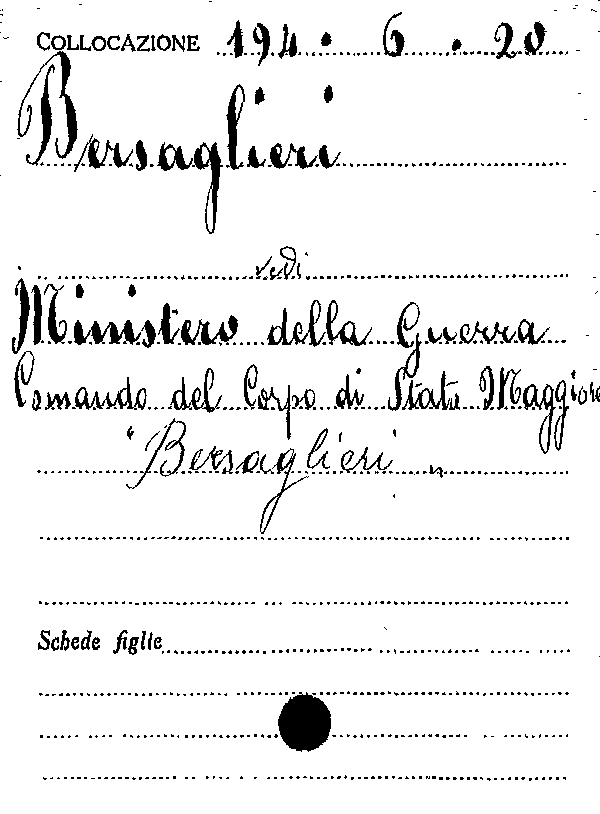 COLLOCAZIONE 194 . 6 . 20
Bersaglieri
vedi
Ministero della Guerra
Comando del Corpo di Stato Maggiore
"Bersaglieri"
Schede figlie